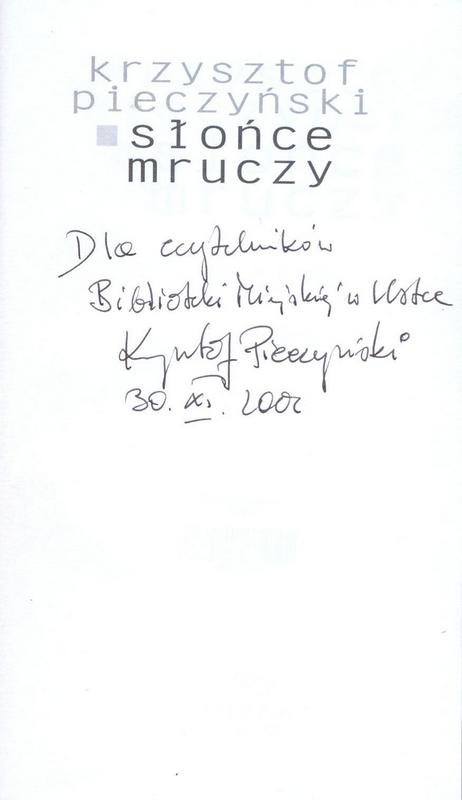 krzysztof
pieczyński
słońce
mruczy
Dla czytelników
Biblioteki Miejskiej w Ustce
Krzysztof Pieczyński
30. XI.